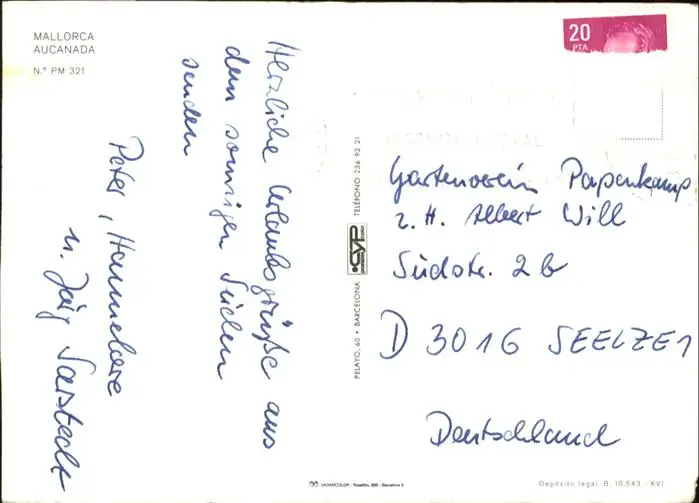 MALLORCA
AUCANADA
N.º PM 321
Herzliche Urlaubsgrüße aus
dem sonnigen Süden
senden
Peter, Hannelore
u. Jörg Sarstedt
20
PTA
Gartenverein Papenkamp
z. H. Albert Will
Südstr. 2b
D 3016 SEELZE 1
Deutschland
PELAYO, 60 • BARCELONA
CYP
TELEFONO 236 92 21
Depósito legal B. 10.543 - XVI